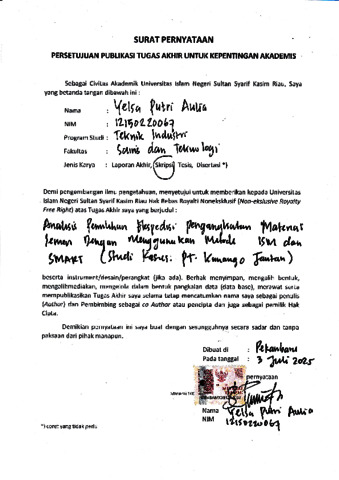 SURAT PERNYATAAN
PERSETUJUAN PUBLIKASI TUGAS AKHIR UNTUK KEPENTINGAN AKADEMIS
Sebagai Civitas Akademik Universitas Islam Negeri Sultan Syarif Kasim Riau, Saya
yang bertanda tangan dibawah ini :
Nama : Yelsa Putri Aulia
NIM : 12150220067
Program Studi : Teknik Industri
Fakultas : Sains dan Teknologi
Jenis Karya : Laporan Akhir, Skripsi, Tesis, Disertasi *)
Demi pengembangan ilmu pengetahuan, menyetujui untuk memberikan kepada Universitas
Islam Negeri Sultan Syarif Kasim Riau Hak Bebas Royalti Noneksklusif (Non-ekslusive Royalty
Free Right) atas Tugas Akhir saya yang berjudul :
Analisis Pemilihan Ekspedisi Pengangkutan Material
Semen Dengan Menggunakan Metode ISM dan
SMART (Studi Kasus: PT. Kunango Jantan)
beserta instrument/desain/perangkat (jika ada). Berhak menyimpan, mengalih bentuk,
mengalihmediakan, mengelola dalam bentuk pangkalan data (data base), merawat serta
mempublikasikan Tugas Akhir saya selama tetap mencatumkan nama saya sebagai penulis
(Author) dan Pembimbing sebagai co Author atau pencipta dan juga sebagai pemilik Hak
Cipta.
Demikian pernyataan ini saya buat dengan sesungguhnya secara sadar dan tanpa
paksaan dari pihak manapun.
Dibuat di : Pekanbaru
Pada tanggal : 3 Juli 2025
pernyataan
Nama Yelsa Putri Aulia
NIM 12150220067
*) coret yang tidak perlu